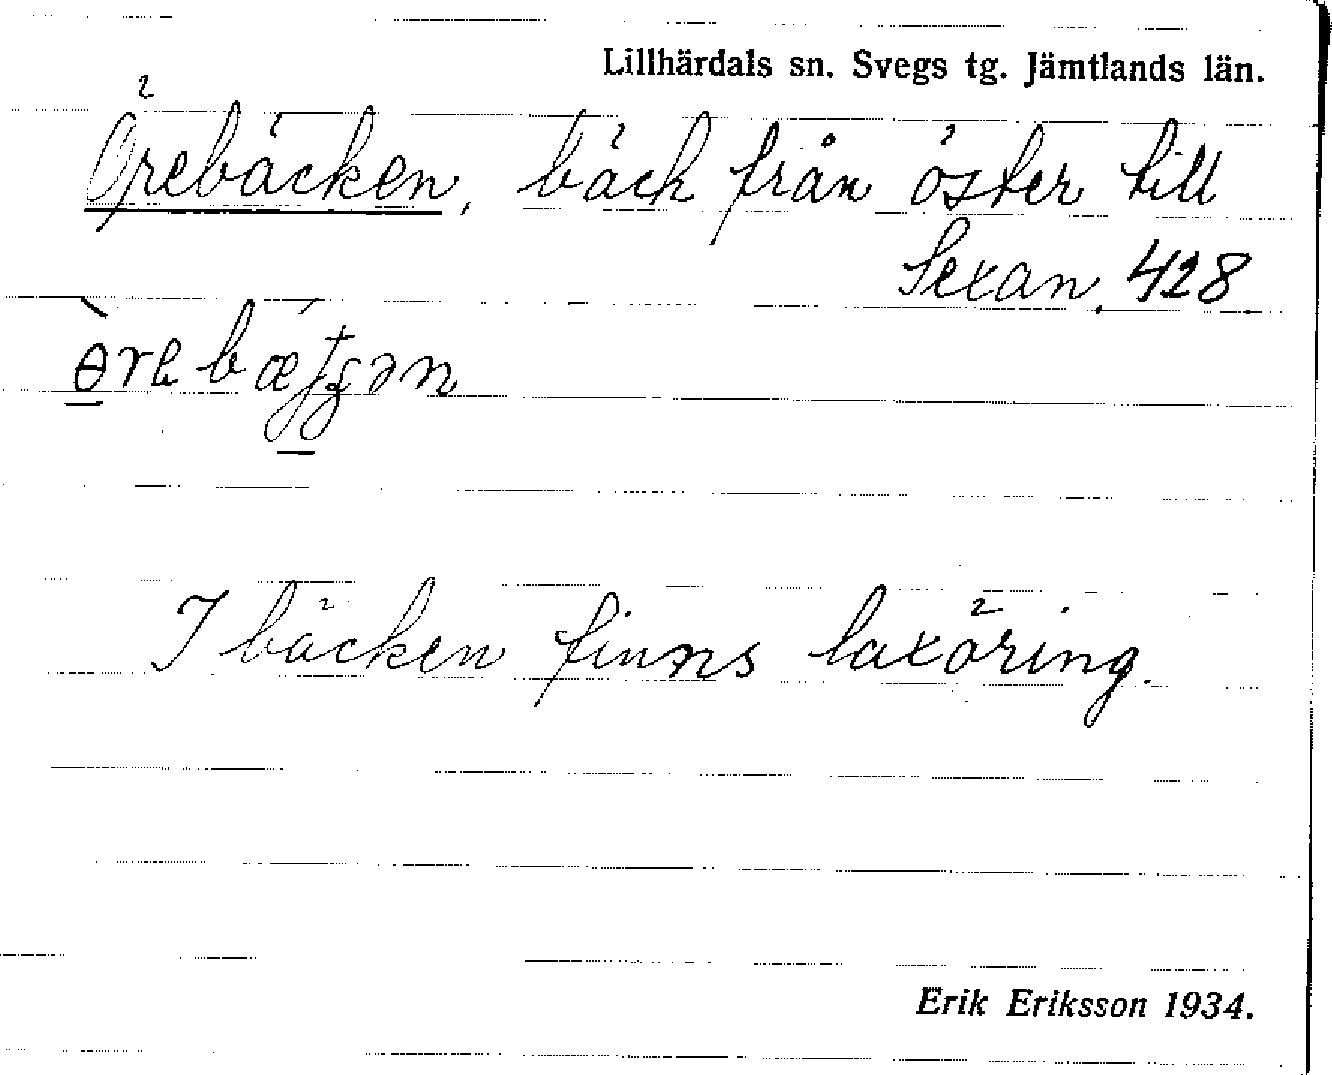 Lillhärdals sn. Svegs tg. Jämtlands län.
Örebäcken, bäck från öster till
Sexan, 428
I bäcken finns laxöring.
Erik Eriksson 1934.